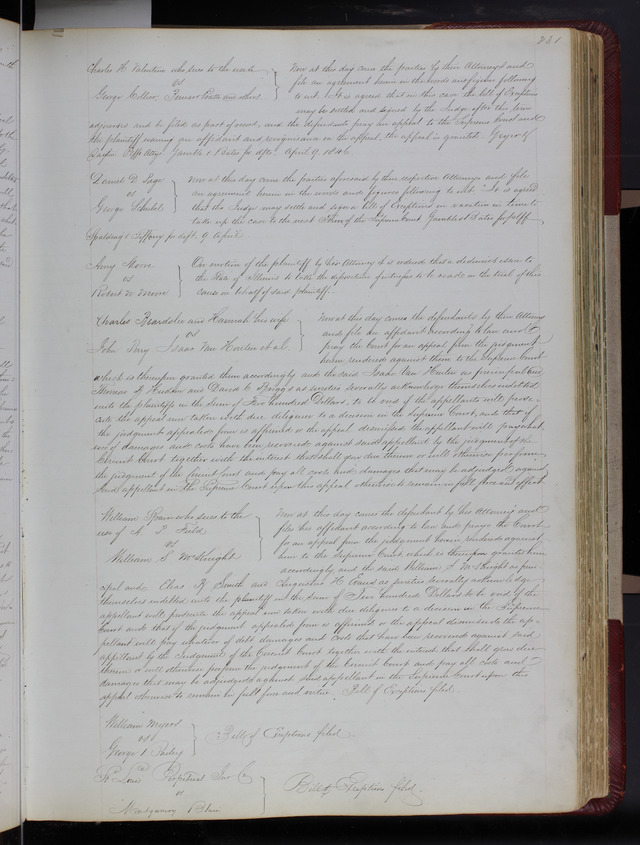 231
Charles H. Valentine who sues to the use of } Now at this day came the parties by their Attorneys and
vs file an agreement herein in the words and figures following
George Collier, and others to wit. It is agreed that in this case the bill of Exceptions
may be settled and signed by the Judge after the term
adjourns and be filed as part of record, and the defendants pray an appeal to the Supreme Court and
the plaintiff waiving an affidavit and recognizance on the appeal, the appeal is granted. Geyer &
Dayton Plffs Attys Gamble & Bates for defts. April 9. 1846
Daniel D. Page } Now at this day came the parties aforesaid by their respective Attorneys and file
vs an agreement herein in the words and figures following to wit "It is agreed
George that the Judge may settle and sign a bill of Exceptions in vacation in time to
take up this case to the next Term of the Supreme Court Gamble & Bates for plff
Spalding & Tiffany for deft. 9 April
Amy Moore } On motion of the plaintiff by her Attorney it is ordered that a dedimus issue to
vs the State of Illinois to take the deposition of witnesses to be read in the trial of this
Robert N. Moore cause on behalf of said plaintiff.
Charles Beardslee and Hannah his wife } Now at this day came the defendants by their Attorney
vs and file an affidavit according to law and
John Perry Isaac Van Houten et al. pray the Court for an appeal from the judgment
herein rendered against them to the Supreme Court
which is thereupon granted them accordingly and the said Isaac Van Houten as principal and
Thomas H. and David C. as sureties severally acknowledge themselves indebted
unto the plaintiffs in the sum of Five Hundred Dollars, to be void if the appellants will prose-
cute the appeal now taken with due diligence to a decision in the Supreme Court, and that if
the judgment appealed from is affirmed or the appeal dismissed the appellant will pay what
ever of damages and costs have been recovered against said appellant by the judgment of the
Circuit Court together with the interest that shall grow due thereon or will otherwise perform
the judgment of the Circuit Court and pay all costs and damages that may be adjudged against
said appellant in the Supreme Court upon this appeal otherwise to remain in full force and effect.
William who sues to the } Now at this day came the defendant by his Attorney and
use of A. P. Field files his affidavit according to law and prays the Court
vs for an appeal from the judgment herein rendered against
William S. McKnight him to the Supreme Court which is thereupon granted him
accordingly and the said William S. McKnight as prin-
cipal and Chas. B. Smith and Augustus H. Evans as sureties severally acknowledge
themselves indebted unto the plaintiff in the sum of Two hundred Dollars to be void if the
appellant will prosecute the appeal now taken with due diligence to a decision in the Supreme
Court and that if the judgment appealed from is affirmed or the appeal dismissed the ap-
pellant will pay whatever of debt damages and costs that have been recovered against said
appellant by the Judgment of the Circuit Court together with the interest that shall grow due
thereon or will otherwise perform the judgment of the Circuit Court and pay all costs and
damages that may be adjudged against said appellant in the Supreme Court upon this
appeal otherwise to remain in full force and virtue. Bill of Exceptions filed.
William Meyers } Bill of Exceptions filed
vs
George
St. Louis Perpetual Ins Co } Bill of Exceptions filed.
vs
Montgomery Blair